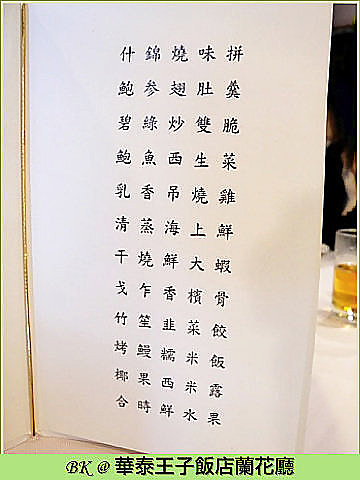 什錦燒味拼
鮑参翅肚羹
碧綠炒雙脆
鮑魚西生菜
乳香吊燒雞
清蒸海上鮮
干燒鮮大蝦
戈乍香檳骨
竹笙韭菜餃
烤鰻糯米飯
椰果西米露
合時鮮水果
BK @ 華泰王子飯店蘭花廳